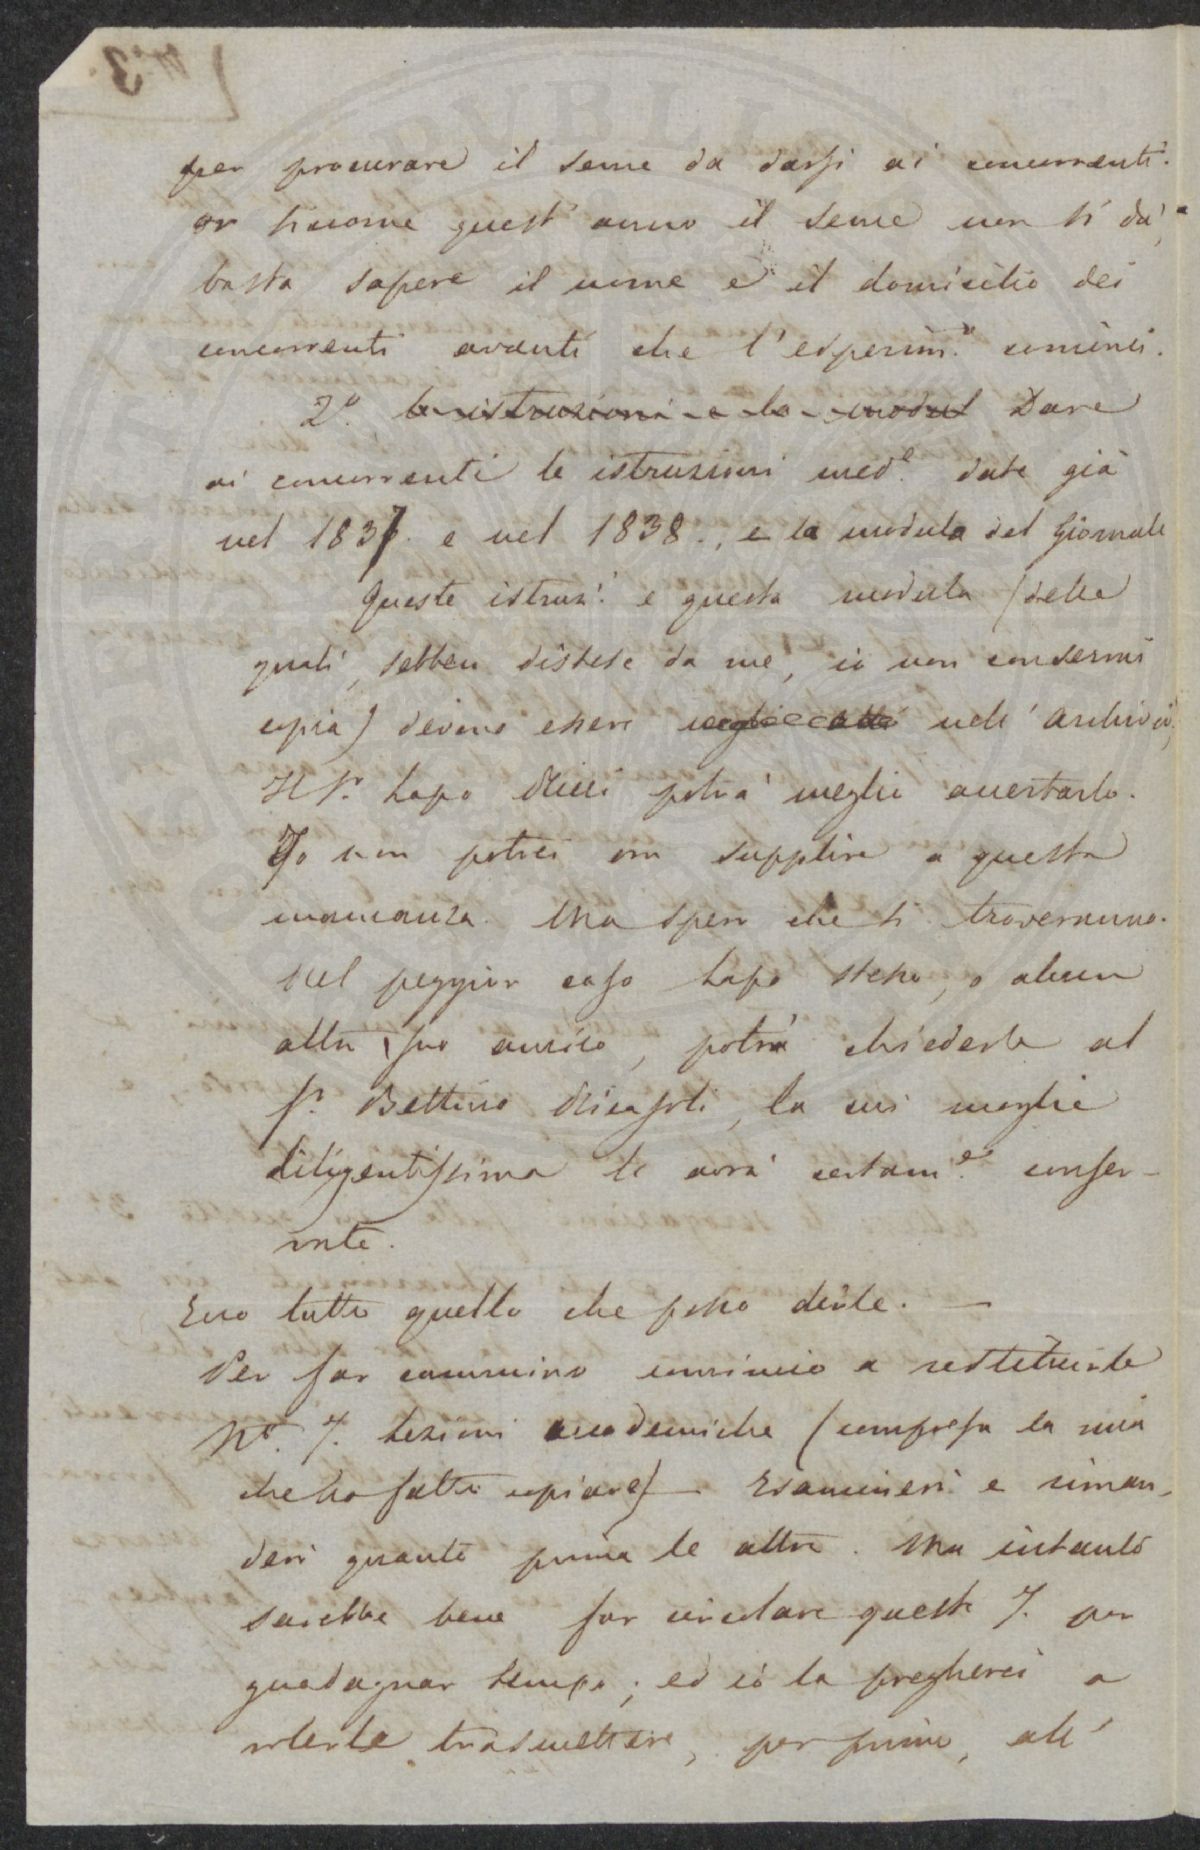 per procurare il seme da darsi ai concorrenti.
or siccome quest'anno il seme non si dà,
basta sapere il nome e il domicilio dei
concorrenti avanti che l'esperim.o cominci.
2.o le istruzioni e la modul Dare
ai concorrenti le istruzioni med.e date già
nel 1837. e nel 1838., e la modula del Giornale
Queste istruz.i e questa modula (delle
quali, sebben distese da me, io non conservai
copia) devono essere negli atti nell'Archivio,
Il S.r Lapo Ricci potrà meglio accertarlo.
Io non potrei ora supplire a questa
mancanza. Ma spero che si troveranno.
Nel peggior caso Lapo stesso, o alcun
altro suo amico, potrà chiederle al
S.r Bettino Ricasoli, la cui moglie
diligentissima le avrà certam.e conser-
vate.
Ecco tutto quello che posso dirle. —
Per far cammino comincio a restituirle
N.o 7. Lezioni accademiche (compresa la mia
che ho fatto copiare) — Esaminerò e riman-
derò quanto prima le altre. Ma intanto
sarebbe bene far circolare queste 7. per
guadagnar tempo; ed io la pregherei a
volerle trasmettere, per primo, all'